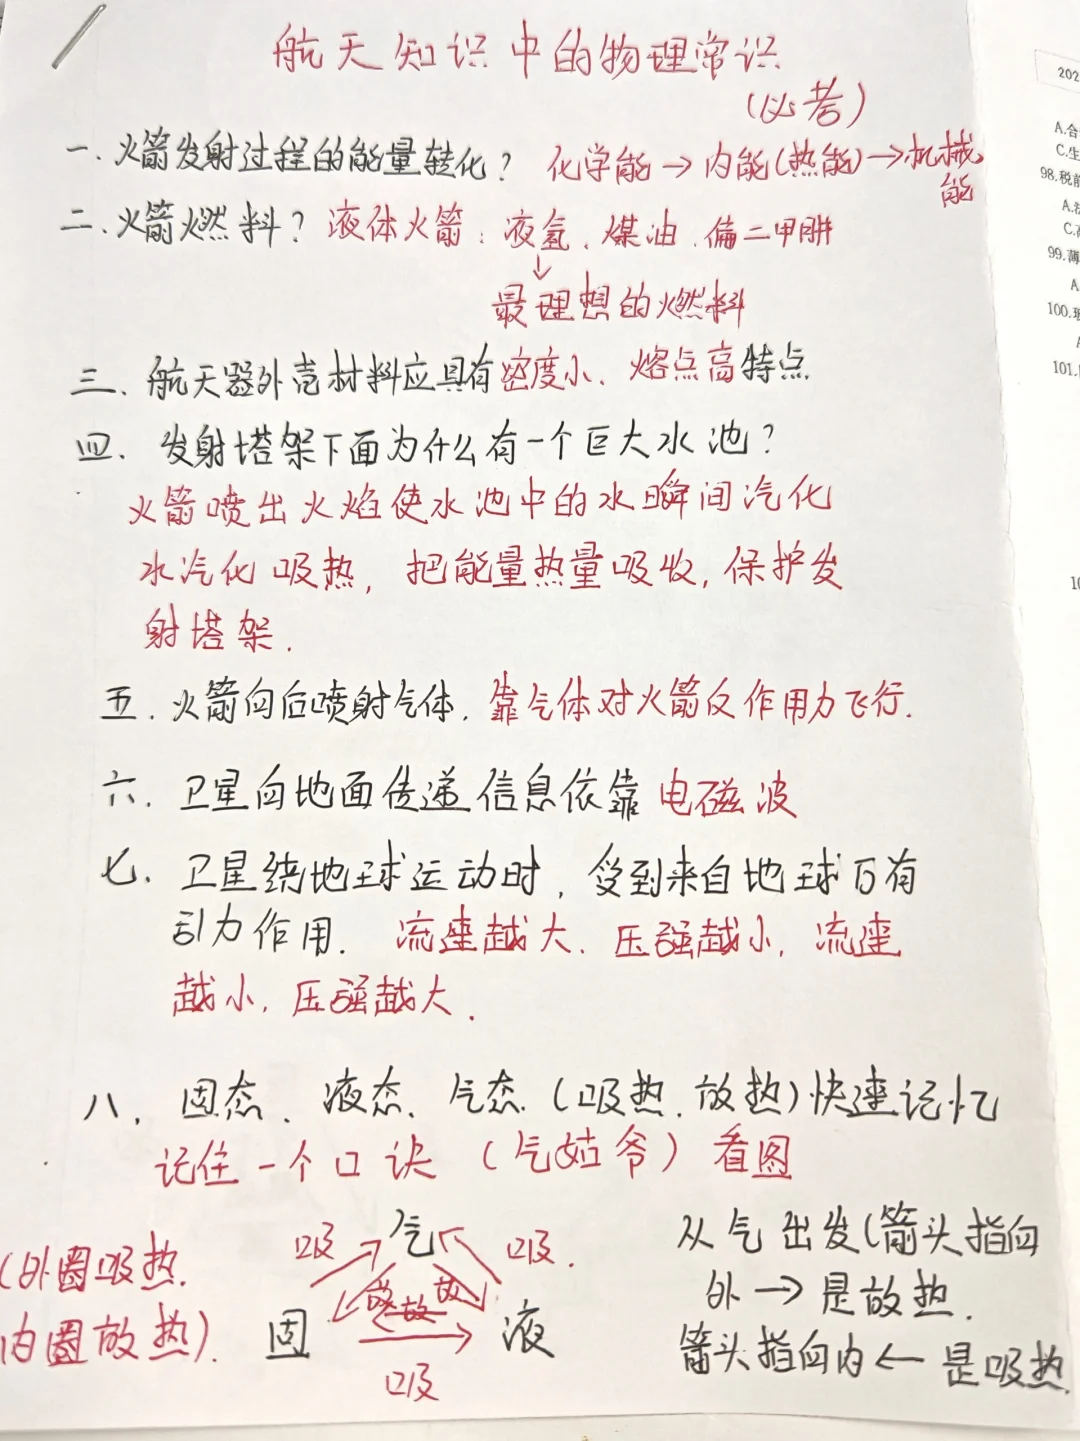 航天知识中的物理常识
(必考)
一.火箭发射过程的能量转化? 化学能→内能(热能)→机械
能
二.火箭燃料? 液体火箭:液氢、煤油、偏二甲肼
↓
最理想的燃料
三、航天器外壳材料应具有密度小、熔点高特点.
四、发射塔架下面为什么有一个巨大水池?
火箭喷出火焰使水池中的水瞬间汽化
水汽化吸热,把能量热量吸收,保护发
射塔架.
五.火箭向后喷射气体.靠气体对火箭反作用力飞行.
六.卫星向地面传递信息依靠电磁波
七.卫星绕地球运动时,受到来自地球万有
引力作用. 流速越大、压强越小,流速
越小,压强越大.
八、固态、液态、气态(吸热、放热)快速记忆
记住一个口诀(气姑爷)看图
吸 气 吸.
放 放 放
固 → 液
吸
(外圈吸热.
内圈放热).
从气出发(箭头指向
外→是放热.
箭头指向内←是吸热.
202
A.合
C.生
98.税前
A.
C.
99.薄
A
100.
A
101.
10